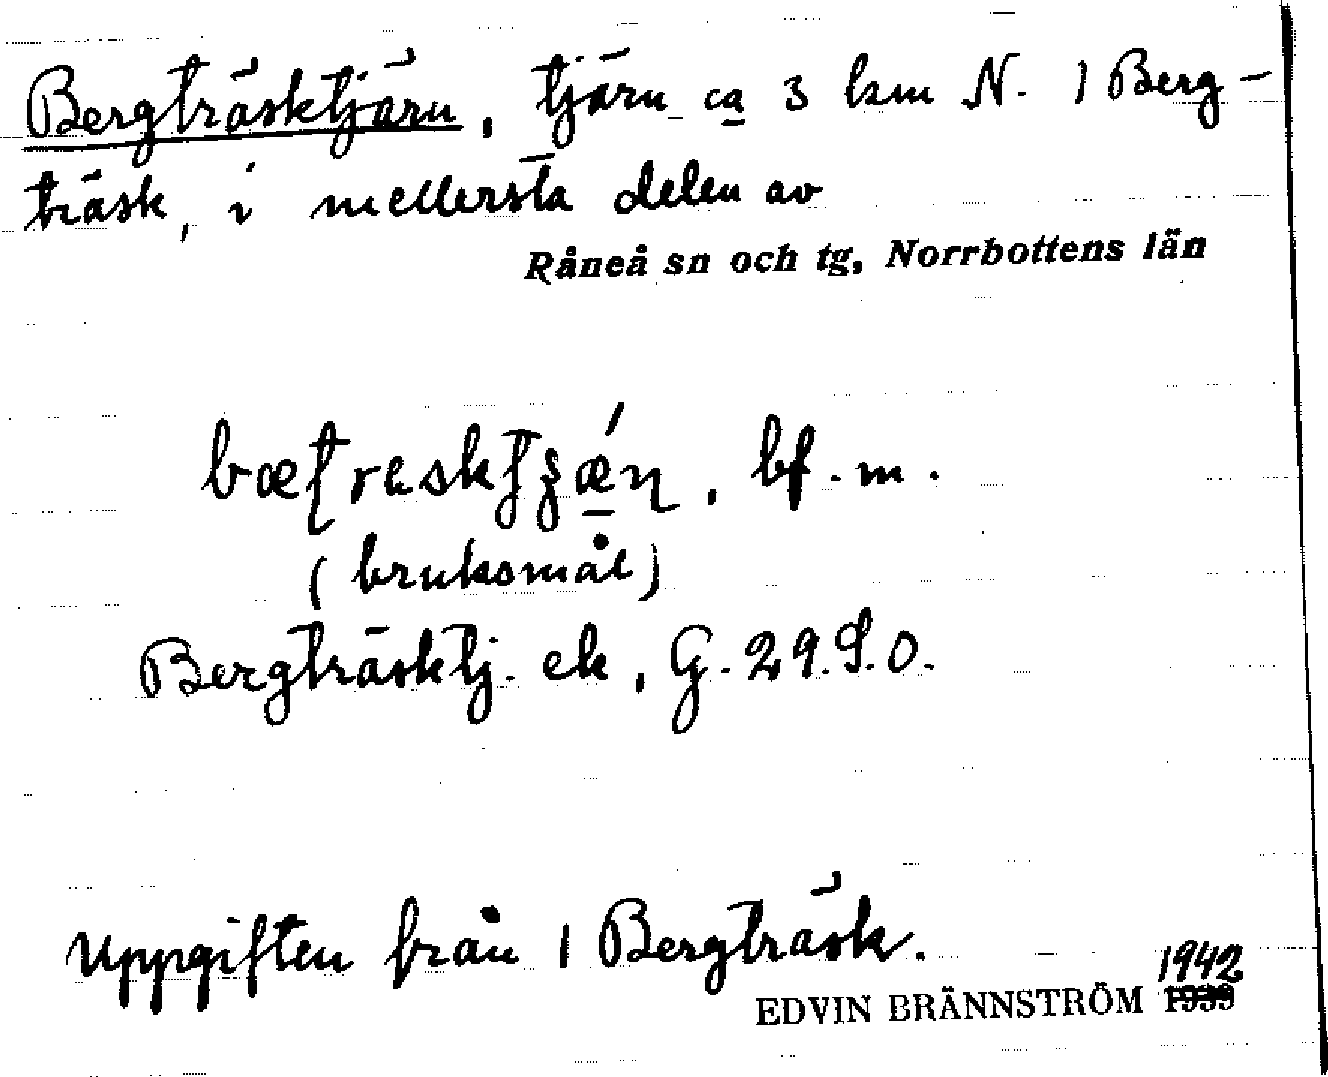 Bergträsktjärn, tjärn ca 3 km N. 1 Berg-
träsk, i mellersta delen av
Råneå sn och tg, Norrbottens län
bf. m.
(bruksmål)
Bergträsktj. ek, G. 29. S.O.
Uppgiften från 1 Bergträsk.
1942
EDVIN BRÄNNSTRÖM 1939